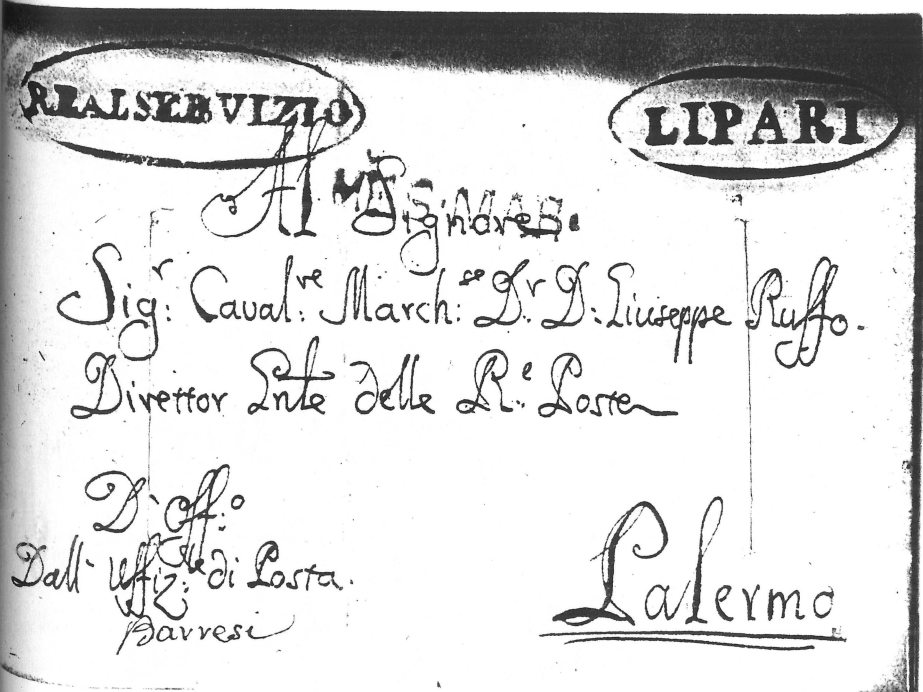 REAL SERVIZIO
LIPARI
Al Signore
Sig:r Caval:re March:se D:r D: Giuseppe Ruffo.
Direttor Gnle delle R:e Poste
D'off:o
Dall' Uffiz:le di Posta.
Barresi
Palermo